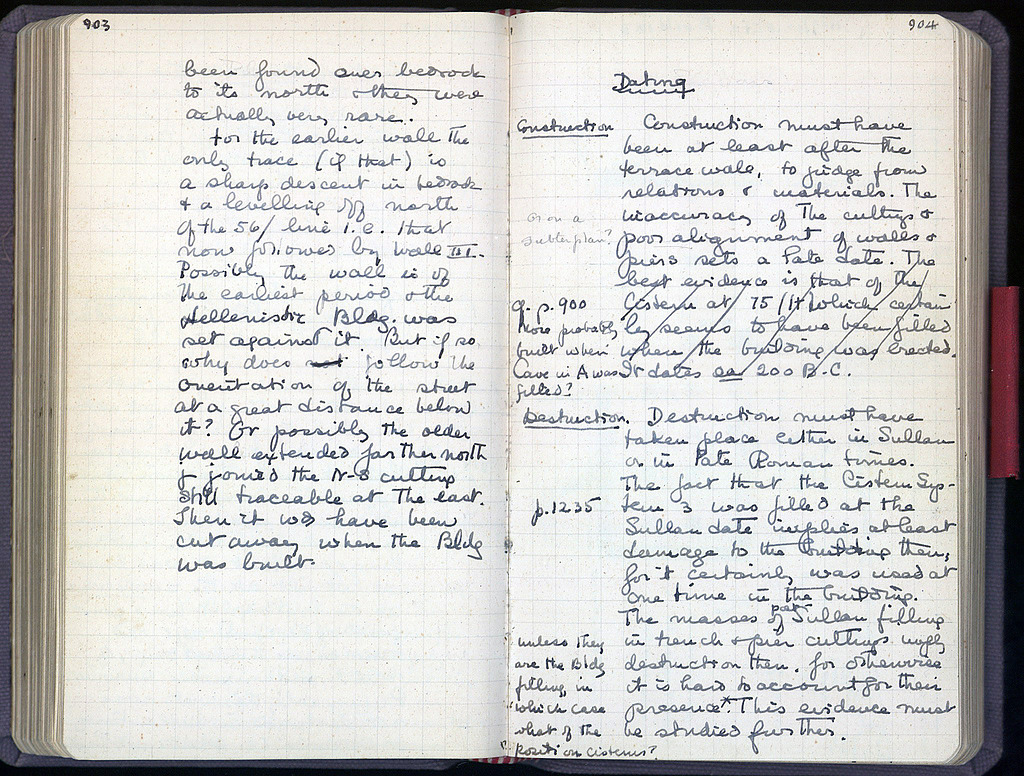 903
been found over bedrock
to its north & they were
actually very rare.
For the earlier wall the
only trace (if that) is
a sharp descent in bedrock
& a levelling off north
of the 56/ line i.e. that
now followed by wall III.
Possibly the wall is of
the earliest period & the
Hellenistic Bldg. was
set against it. But if so
why does not follow the
orientation of the street
at a great distance below
it? Or possibly the older
wall extended farther north
& joined the N-S cutting
still traceable at the east.
Then it wd have been
cut away when the Bldg
was built.
904
Dating
Construction Construction must have
been at least after the
terrace wall, to judge from
relations & materials. The
inaccuracy of the cuttings &
poor alignment of walls &
piers sets a late date. The
best evidence is that of the
Cistern at 75/ΙΤ which certain
ly seems to have been filled
when the building was erected.
It dates ca 200 B.C.
or on a
subter plan?
cf. p. 900
More probably
built when
Cave in A was
filled?
Destruction. Destruction must have
taken place either in Sullan
or in late Roman times.
The fact that the Cistern Sys-
p. 1235 tem 3 was filled at the
Sullan date implies at least
damage to the building then,
for it certainly was used at
one time in the building.
The masses of post Sullan filling
in trench & pier cuttings imply
destruction then, for otherwise
it is hard to account for their
presence*. This evidence must
be studied further.
unless they
are the Bldg
filling, in
which case
what of the
position cisterns?